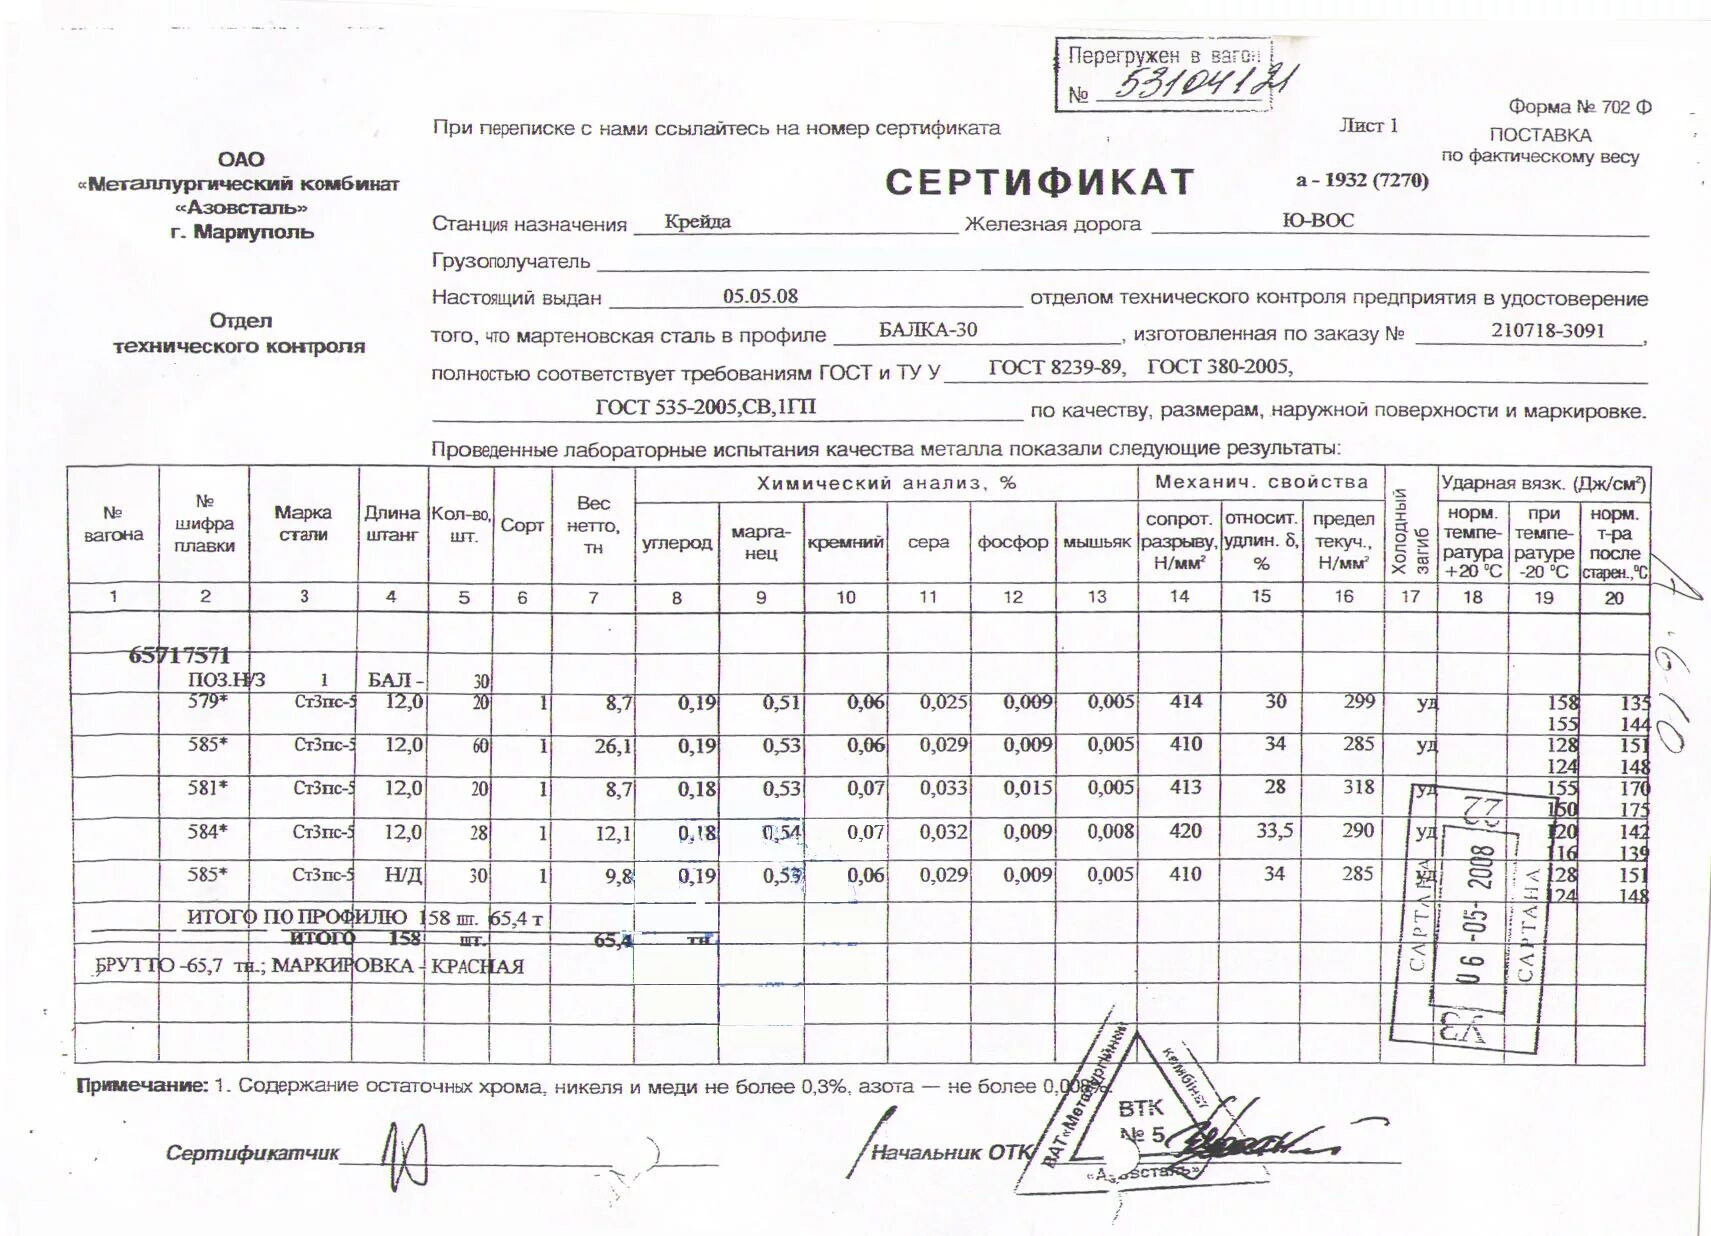 Перегружен в вагон
№ 53104121
Форма № 702 Ф
При переписке с нами ссылайтесь на номер сертификата
Лист 1
ПОСТАВКА
по фактическому весу
ОАО
«Металлургический комбинат
«Азовсталь»
г. Мариуполь
СЕРТИФИКАТ
а - 1932 (7270)
Станция назначения Крейда Железная дорога Ю-ВОС
Грузополучатель
Настоящий выдан 05.05.08 отделом технического контроля предприятия в удостоверение
Отдел
технического контроля
того, что мартеновская сталь в профиле БАЛКА-30, изготовленная по заказу № 210718-3091,
полностью соответствует требованиям ГОСТ и ТУ У ГОСТ 8239-89, ГОСТ 380-2005,
ГОСТ 535-2005,СВ,1ГП по качеству, размерам, наружной поверхности и маркировке.
Проведенные лабораторные испытания качества металла показали следующие результаты:
№ вагона
№ шифра плавки
Марка стали
Длина штанг
Кол-во, шт.
Сорт
Вес нетто, тн
Химический анализ, %
углерод
марга-нец
кремний
сера
фосфор
мышьяк
Механич. свойства
сопрот. разрыву, Н/мм²
относит. удлин. δ, %
предел текуч., Н/мм²
Холодный загиб
Ударная вязк. (Дж/см²)
норм. темпе-ратура +20 °С
при темпе-ратуре -20 °С
норм. т-ра после старен.,°С
1 2 3 4 5 6 7 8 9 10 11 12 13 14 15 16 17 18 19 20
65717571
ПОЗ.Н/З 1 БАЛ - 30
579* Ст3пс-5 12,0 20 1 8,7 0,19 0,51 0,06 0,025 0,009 0,005 414 30 299 уд 158 135
155 144
585* Ст3пс-5 12,0 60 1 26,1 0,19 0,53 0,06 0,029 0,009 0,005 410 34 285 уд 128 151
124 148
581* Ст3пс-5 12,0 20 1 8,7 0,18 0,53 0,07 0,033 0,015 0,005 413 28 318 уд 155 170
150 175
584* Ст3пс-5 12,0 28 1 12,1 0,18 0,54 0,07 0,032 0,009 0,008 420 33,5 290 уд 120 142
116 139
585* Ст3пс-5 Н/Д 30 1 9,8 0,19 0,53 0,06 0,029 0,009 0,005 410 34 285 уд 128 151
124 148
ИТОГО ПО ПРОФИЛЮ 158 шт. 65,4 т
ИТОГО 158 шт. 65,4 тн
БРУТТО -65,7 тн.; МАРКИРОВКА - КРАСНАЯ
САРТАНА
06-05-2008
САРТАНА
Примечание: 1. Содержание остаточных хрома, никеля и меди не более 0,3%, азота — не более 0,008%.
Сертификатчик
Начальник ОТК
ВАТ «Металургійний
комбінат
«Азовсталь»
ВТК
№ 5